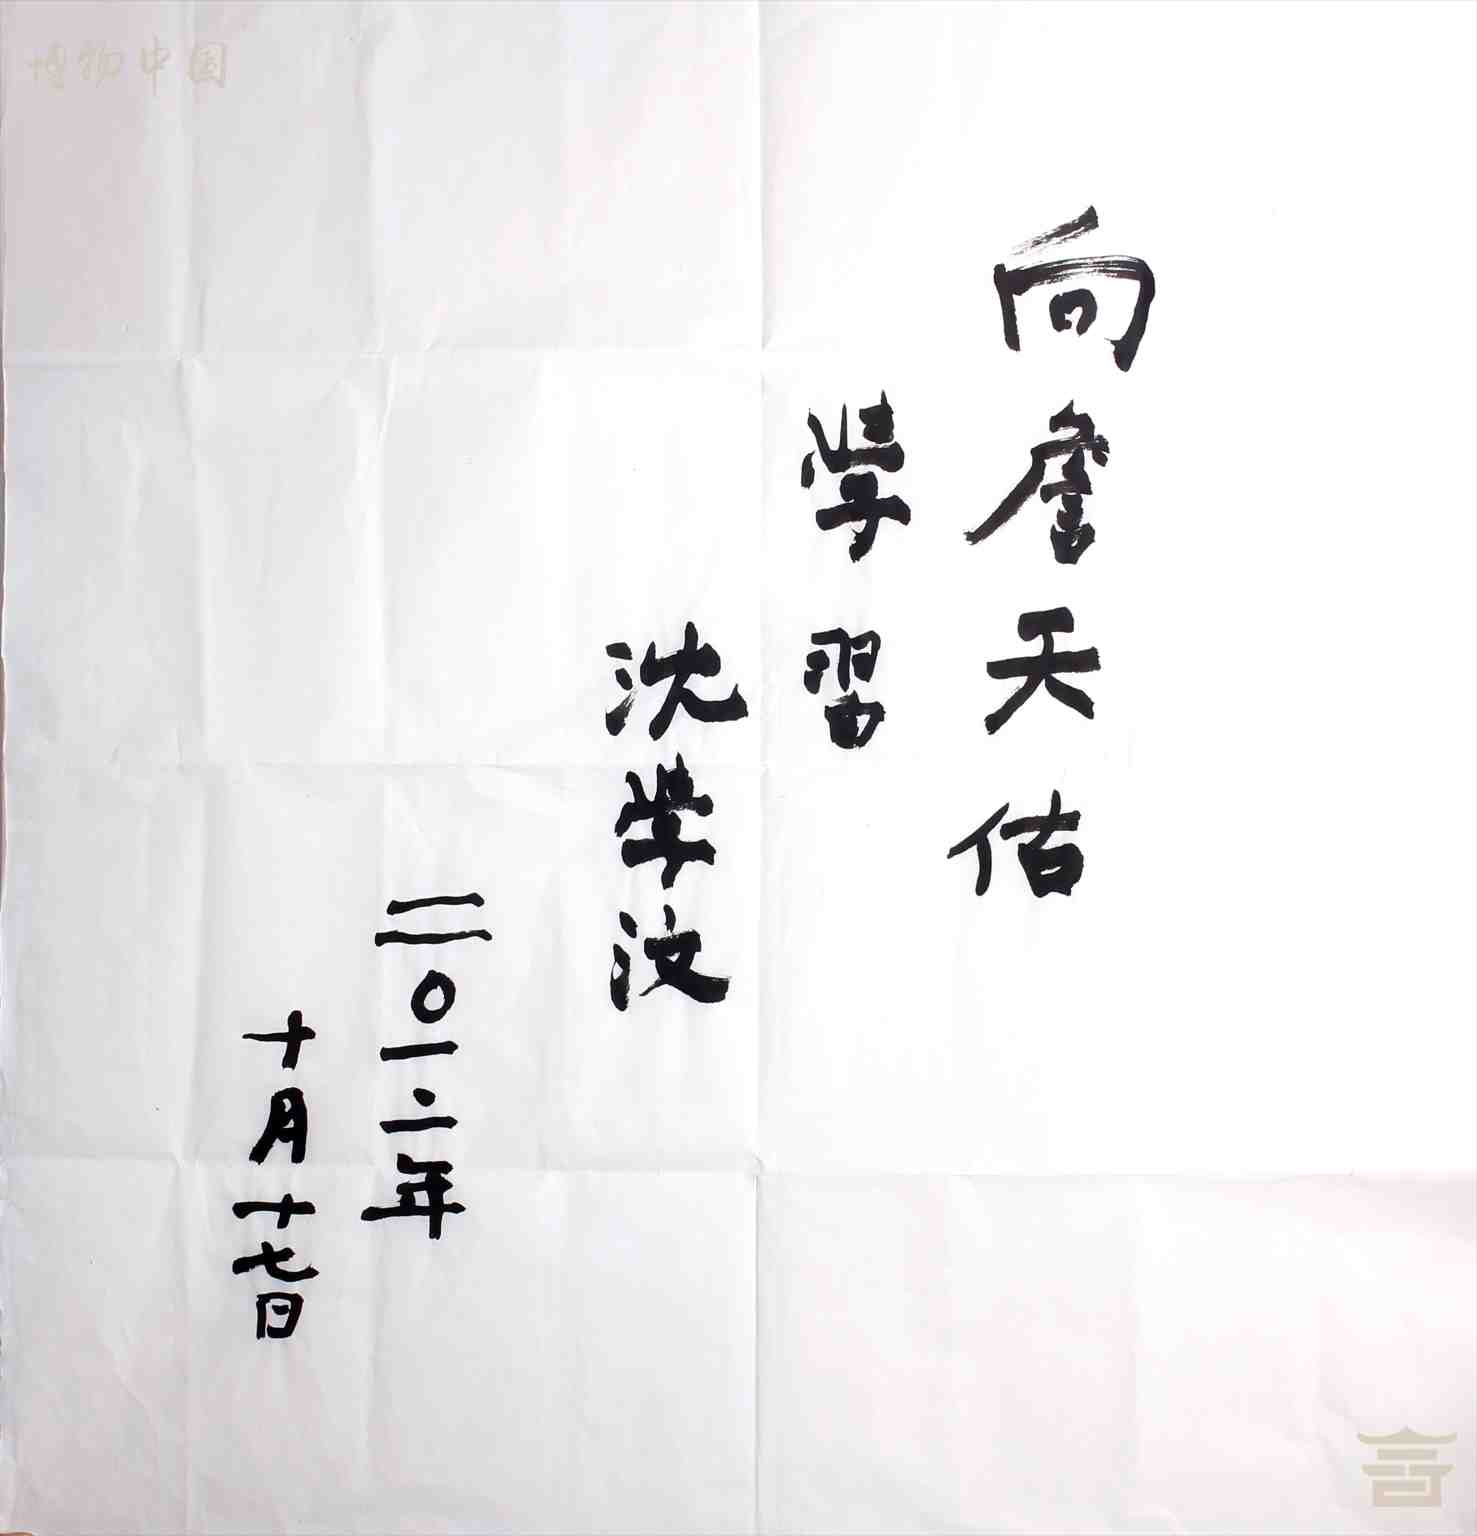 向詹天佑
學習
沈學汶
二〇一二年
十月十七日
博物中国